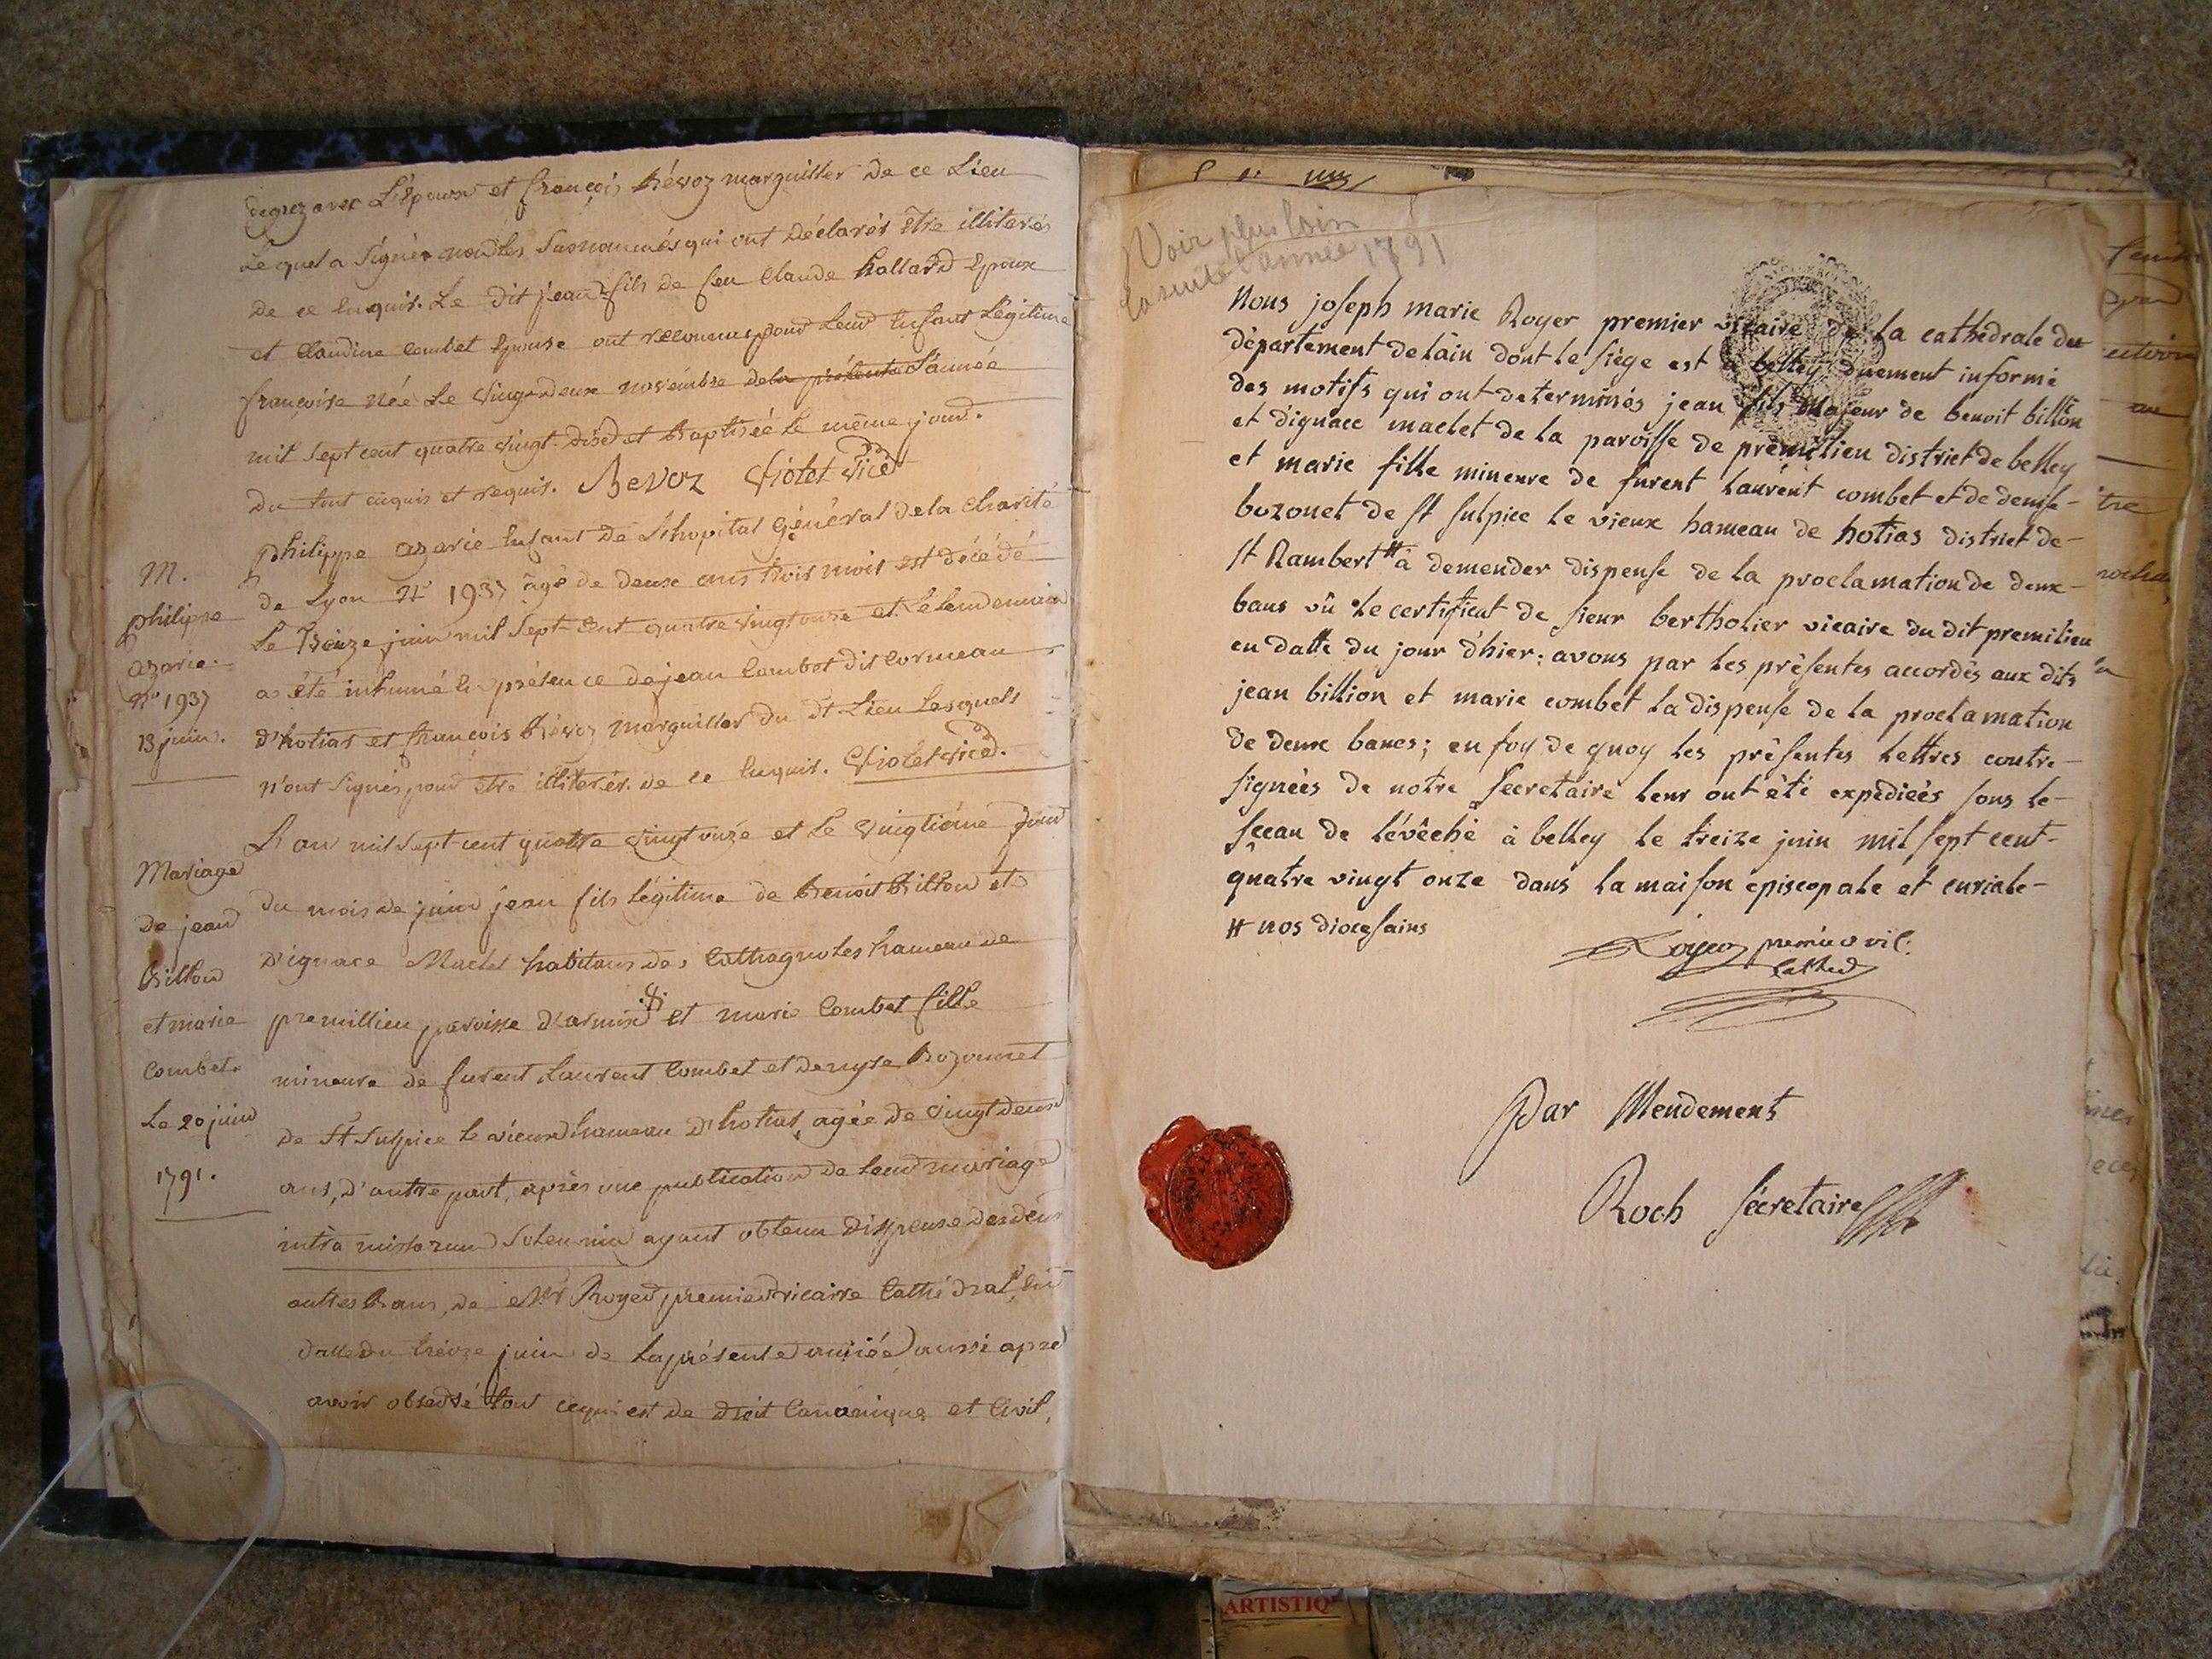 degrez avec L'Epouse et françois Bévoz marguiller de ce Lieu
Le quel a signé non les susnommés qui ont déclarés être illiterés
de ce Enquis. Le dit jean fils de feu Claude hollard Epoux
et Claudine Combet Epouse ont reconnus pour Leur Enfant Légitime
françoise Née Le vingt deux novembre de la présente L'année
mil sept cent quatre vingt dix et baptisée Le même jour.
du tout enquis et requis. Bevoz Violet vice
M.
philippe
azarie
No 1937
13 juin.
philippe azarie Enfant de L'hopital Général de la Charité
de Lyon No 1937 âgé de deux ans trois mois est décédé
Le treize juin mil sept cent quatre vingt onze et Le lendemain
a été inhumé En présence de jean Combet dit cormeau
d'hotias et françois Bévoz marguiller du dt Lieu Lesquels
n'ont signés pour être illiterés. de ce Enquis. Violet vice.
Mariage
de jean
Billion
et marie
Combet.
Le 20 juin
1791.
L'an mil sept cent quatre vingt onze et Le vingtième jour
du mois de juin jean fils Légitime de Benoit Billion et
d'ignace Maclet habitans des Cathagnoles hameau de
premillieu paroisse d'armix et marie Combet fille
mineure de furent Laurent Combet et denyse Bozonnet
de St Sulpice Le vieux hameau d'hotias, agée de vingt deux
ans, d'autre part, après une publication de Leur mariage
intra missarum solemnia ayant obtenu dispense des deux
autres Bans, de Mr Royer premier vicaire Cathédral, En
datte du treize juin de La présente année aussi après
avoir observé tout ce qui est de droit Canonique et Civil,
Voir plus loin
la suite l'année 1791
Nous joseph marie Royer premier vicaire de La cathédrale du
département de lain dont le siége est à belley duement informé
des motifs qui ont determinés jean fils majeur de benoit billion
et d'ignace maclet de la paroisse de premilieu district de belley
et marie fille mineure de furent laurent combet et de denise
bozonet de st sulpice le vieux hameau de hotias district de
st Rambert # à demender dispense de la proclamation de deux
bans vû le certificat de sieur bertholier vicaire du dit premilieu
en datte du jour d'hier; avons par les présentes accordés aux dits
jean billion et marie combet la dispense de la proclamation
de deux bancs; en foy de quoy les présentes lettres contre
signées de notre secretaire leur ont été expédiées sous le
sceau de lévêché à belley le treize juin mil sept cent
quatre vingt onze dans la maison episcopale et curiale
# nos diocesains
Royer premier vic:
Cathed
Par Mendement
Roch sécretaire
ARTISTIQ